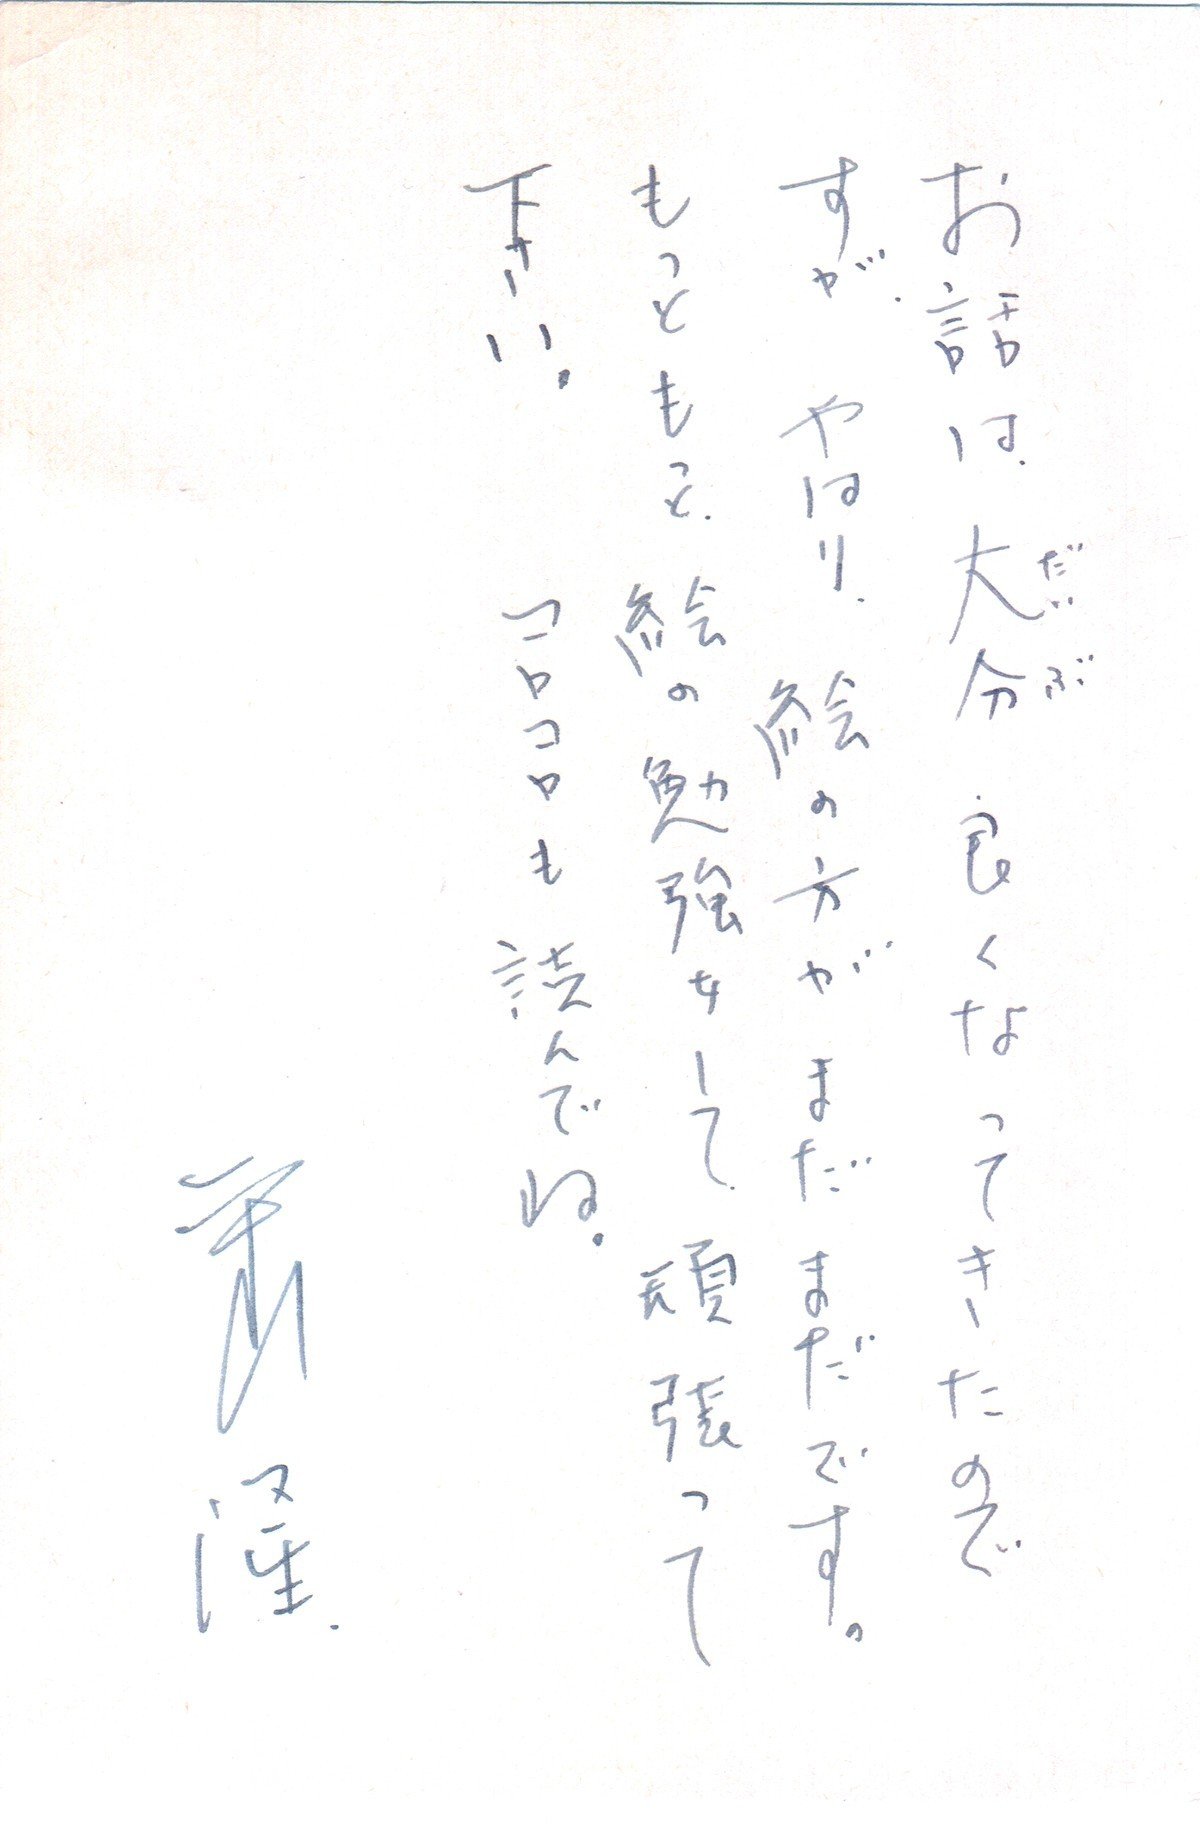 お話は、大分良くなってきたので
だいぶ
すが、やはり、絵の方がまだまだです。
もっともっと、絵の勉強をして、頑張って
下さい。コロコロも読んでね。